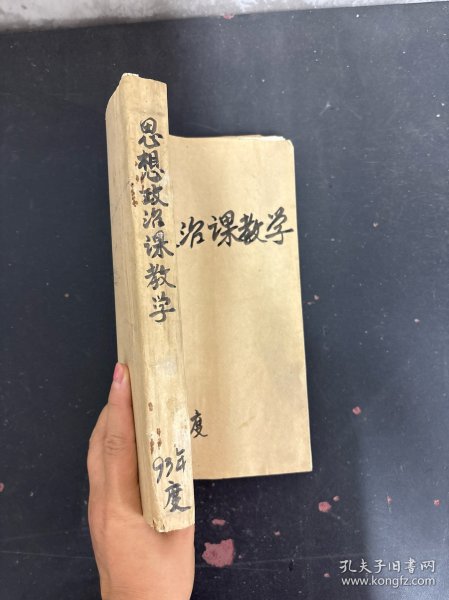 思想政治课教学
93年度
治课教学
度
孔夫子旧书网
www.kongfz.com